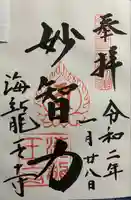 奉拝
令和二年
一月廿八日
妙智力
海龍王寺